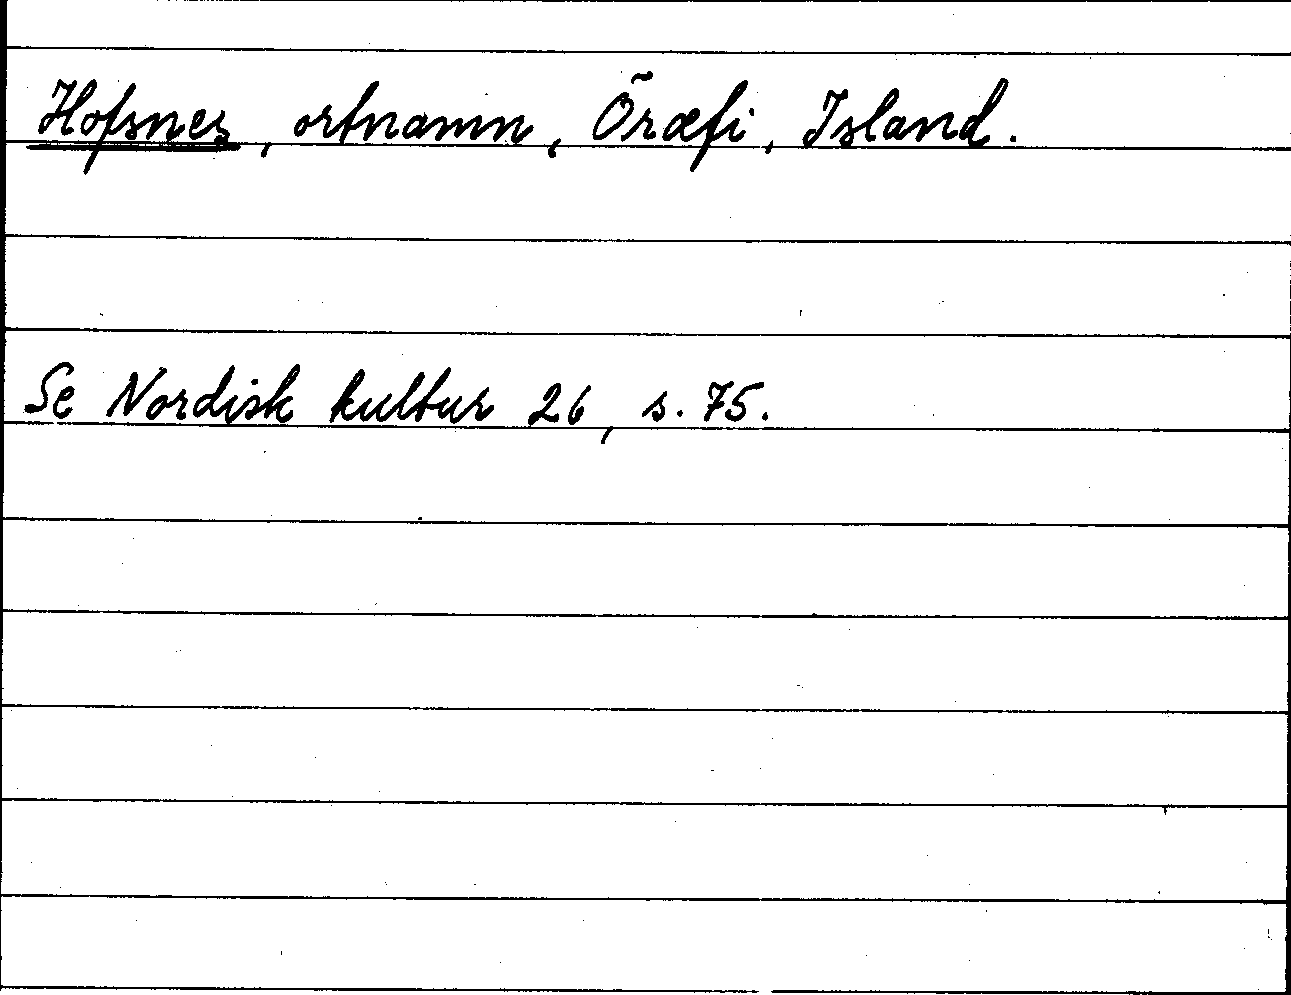 Hofsnes, ortnamn, Öræfi, Island.
Se Nordisk kultur 26, s. 75.